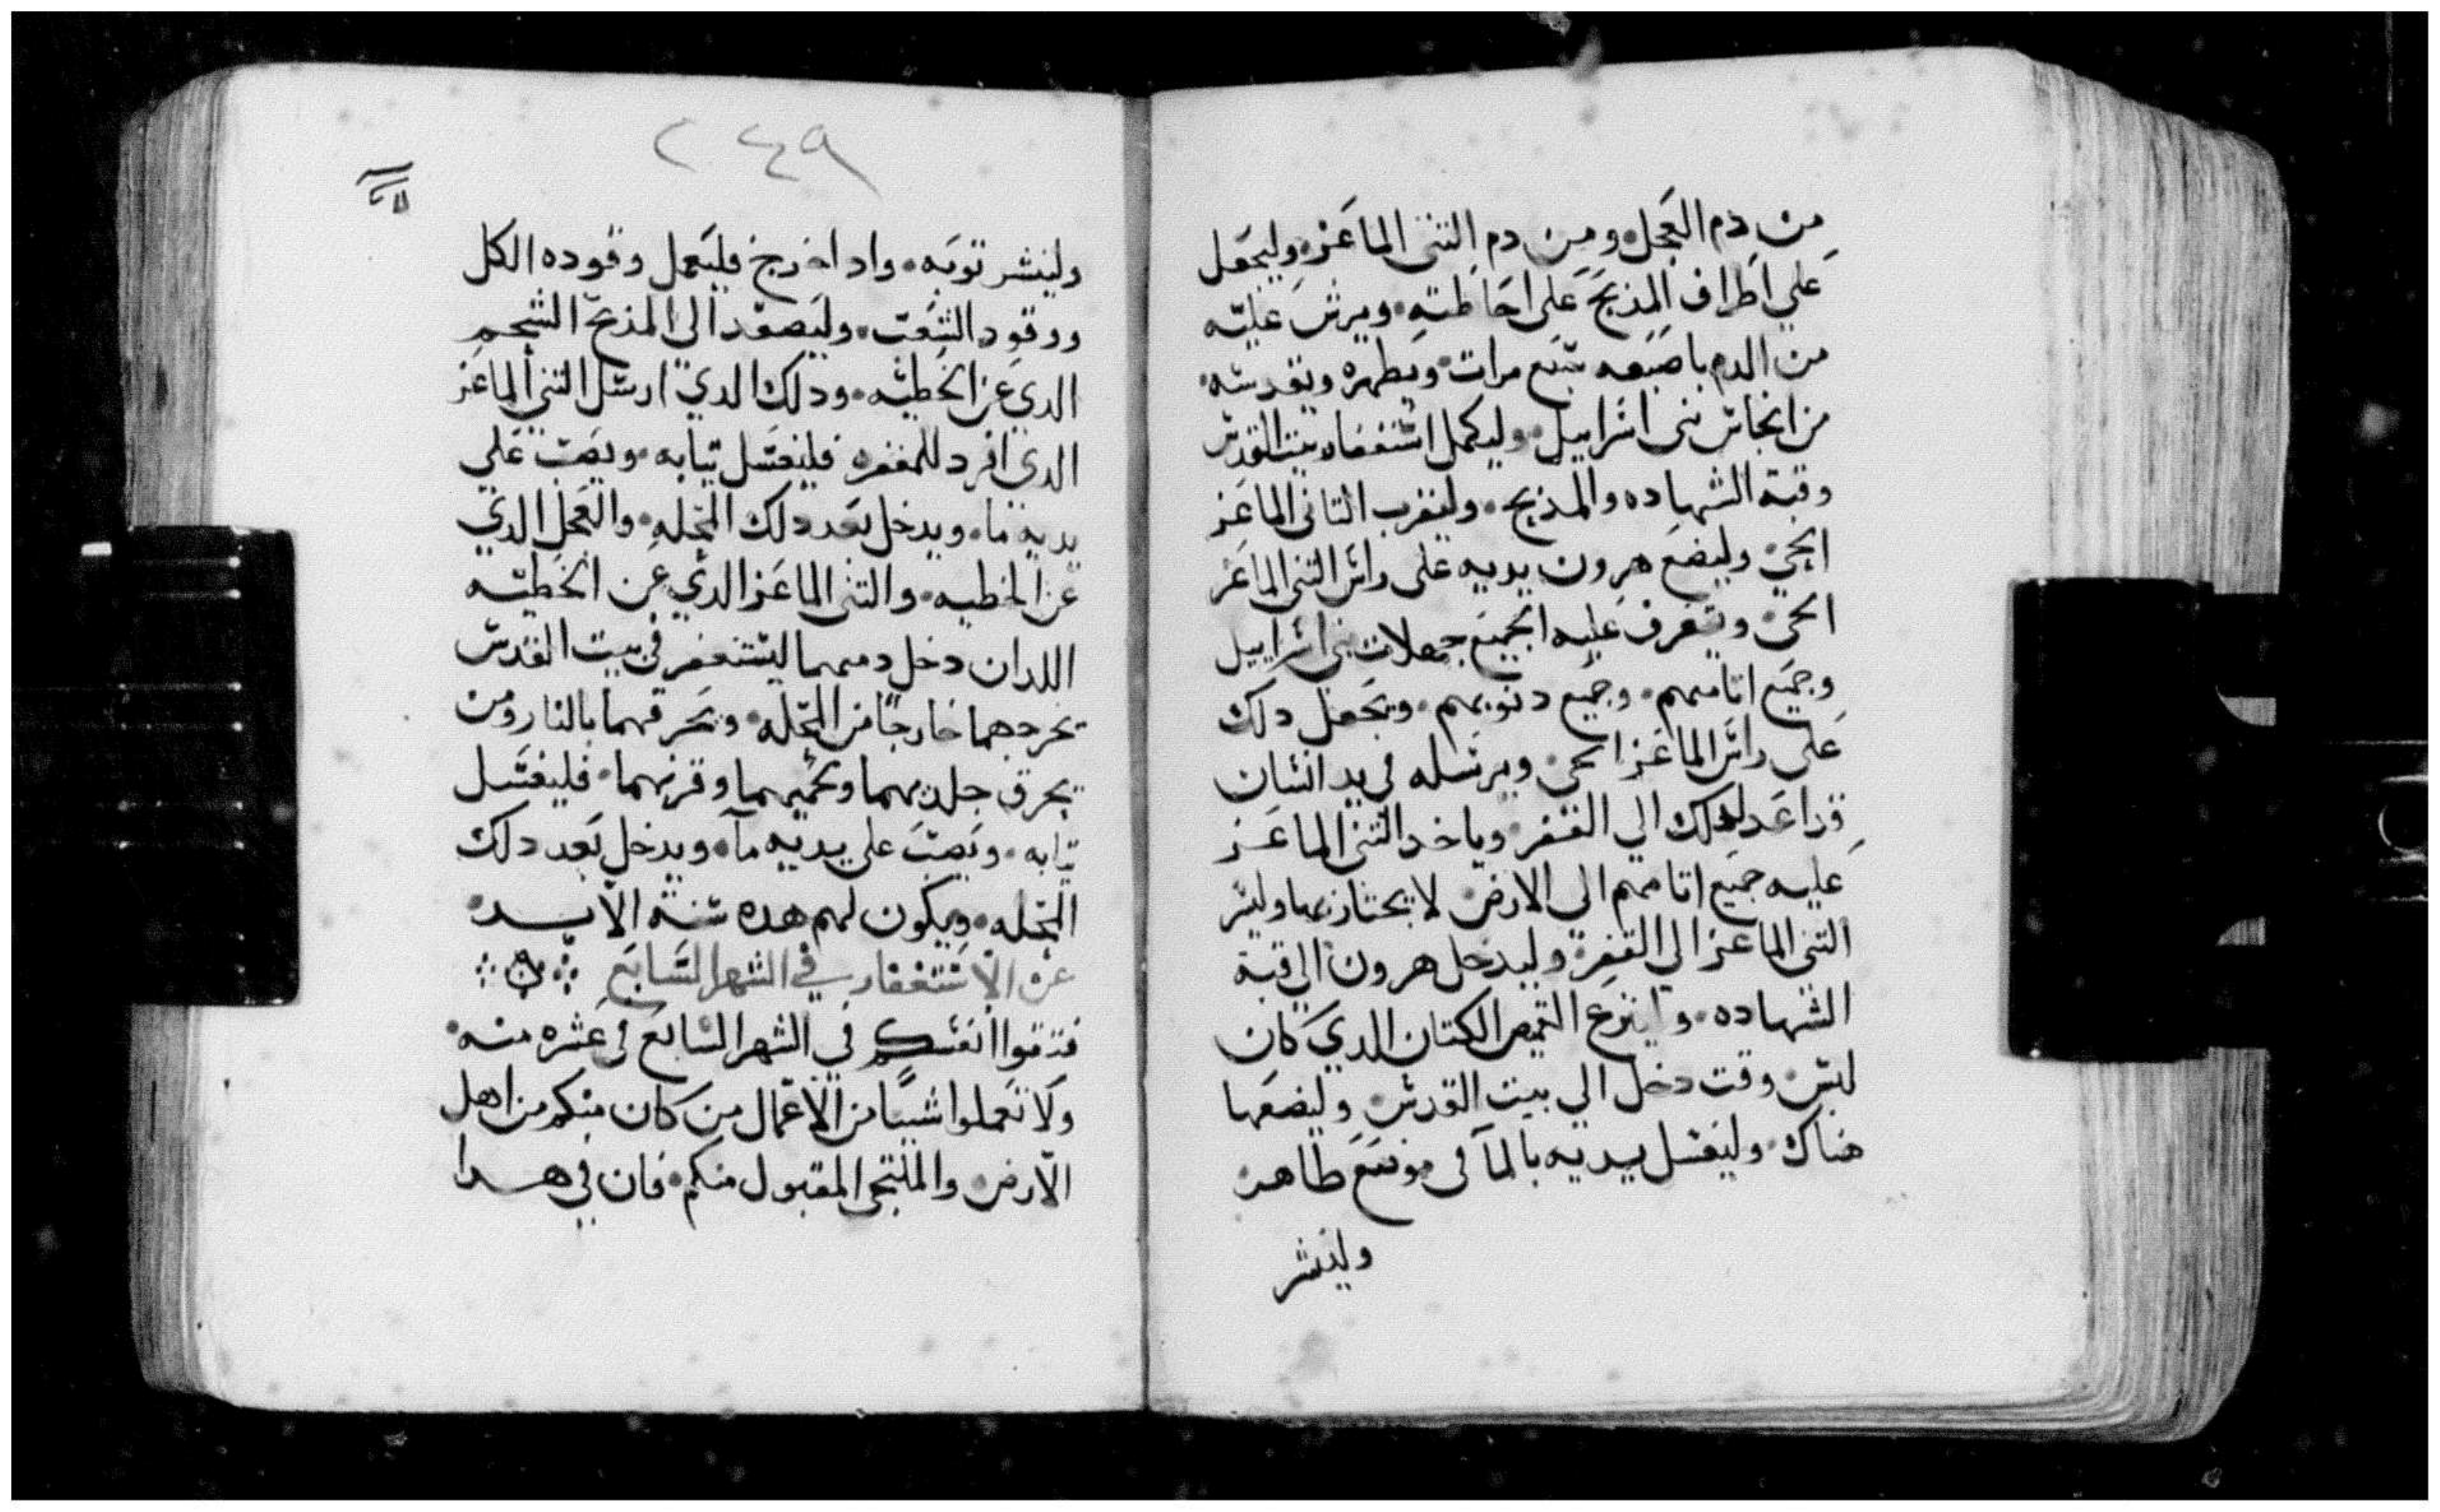 من دم العجل ومن دم التني الماعز وليجعل
علي اطراف المذبح علي احاطته ويرش عليه
من الدم باصبعه سبع مرات ويطهره ويقدسه
من انجاس بني اسراييل وليكمل استغفار بيت القدس
وقبة الشهاده والمذبح وليقرب التاني الماعز
الحي وليضع هرون يديه على راس التني الماعز
الحي ويعرف عليه الجميع جهلات بني اسراييل
وجميع اتامهم وجميع دنوبهم ويجعل دلك
على راس الماعز الحي ويرسله في يد انسان
قد اعد لدلك الي القفر وياخد التني الماعز
عليه جميع اتامهم الي الارض لا يجتاز بها
التني الماعز الي القفر وليدخل هرون الي قبة
الشهاده ولينزع القميص الكتان الدي كان
لبس وقت دخل الي بيت القدس وليضعها
هناك وليغسل يديه بالمآ في موضع طاهر
ولينشر
٢٤٩
ولينشر توبه وادا خرج فليعمل وقوده الكل
ووقود الشعب وليصعد الي المذبح الشحم
الدي عن الخطيه ودلك الدي ارسل التني الماعز
الدي افرد للمغفره فليغسل تيابه ويصب علي
يديه ما ويدخل بعد دلك المحله والعجل الدي
عن الخطيه والتني الماعز الدي عن الخطيه
اللدان دخل دمهما ليستغفر في بيت القدس
يخرجهما خارجًا من المحله ويحرقهما بالنار ومن
يحرق جلديهما ولحميهما وفرثهما فليغسل
تيابه ويصب علي يديه مآ ويدخل بعد دلك
المحله ويكون لهم هده سنة الابد
عن الاستغفار في الشهر السابع
انفسكم في الشهر السابع في عشره منه
ولا تعملوا شيًا من الاعمال من كان منكم من اهل
الارض والملتجي المقبول منكم فان في هدا